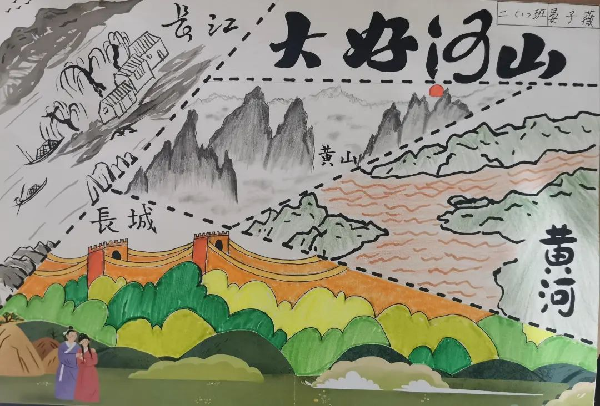 長江
大好河山
二(1)班
黄山
長城
黄河